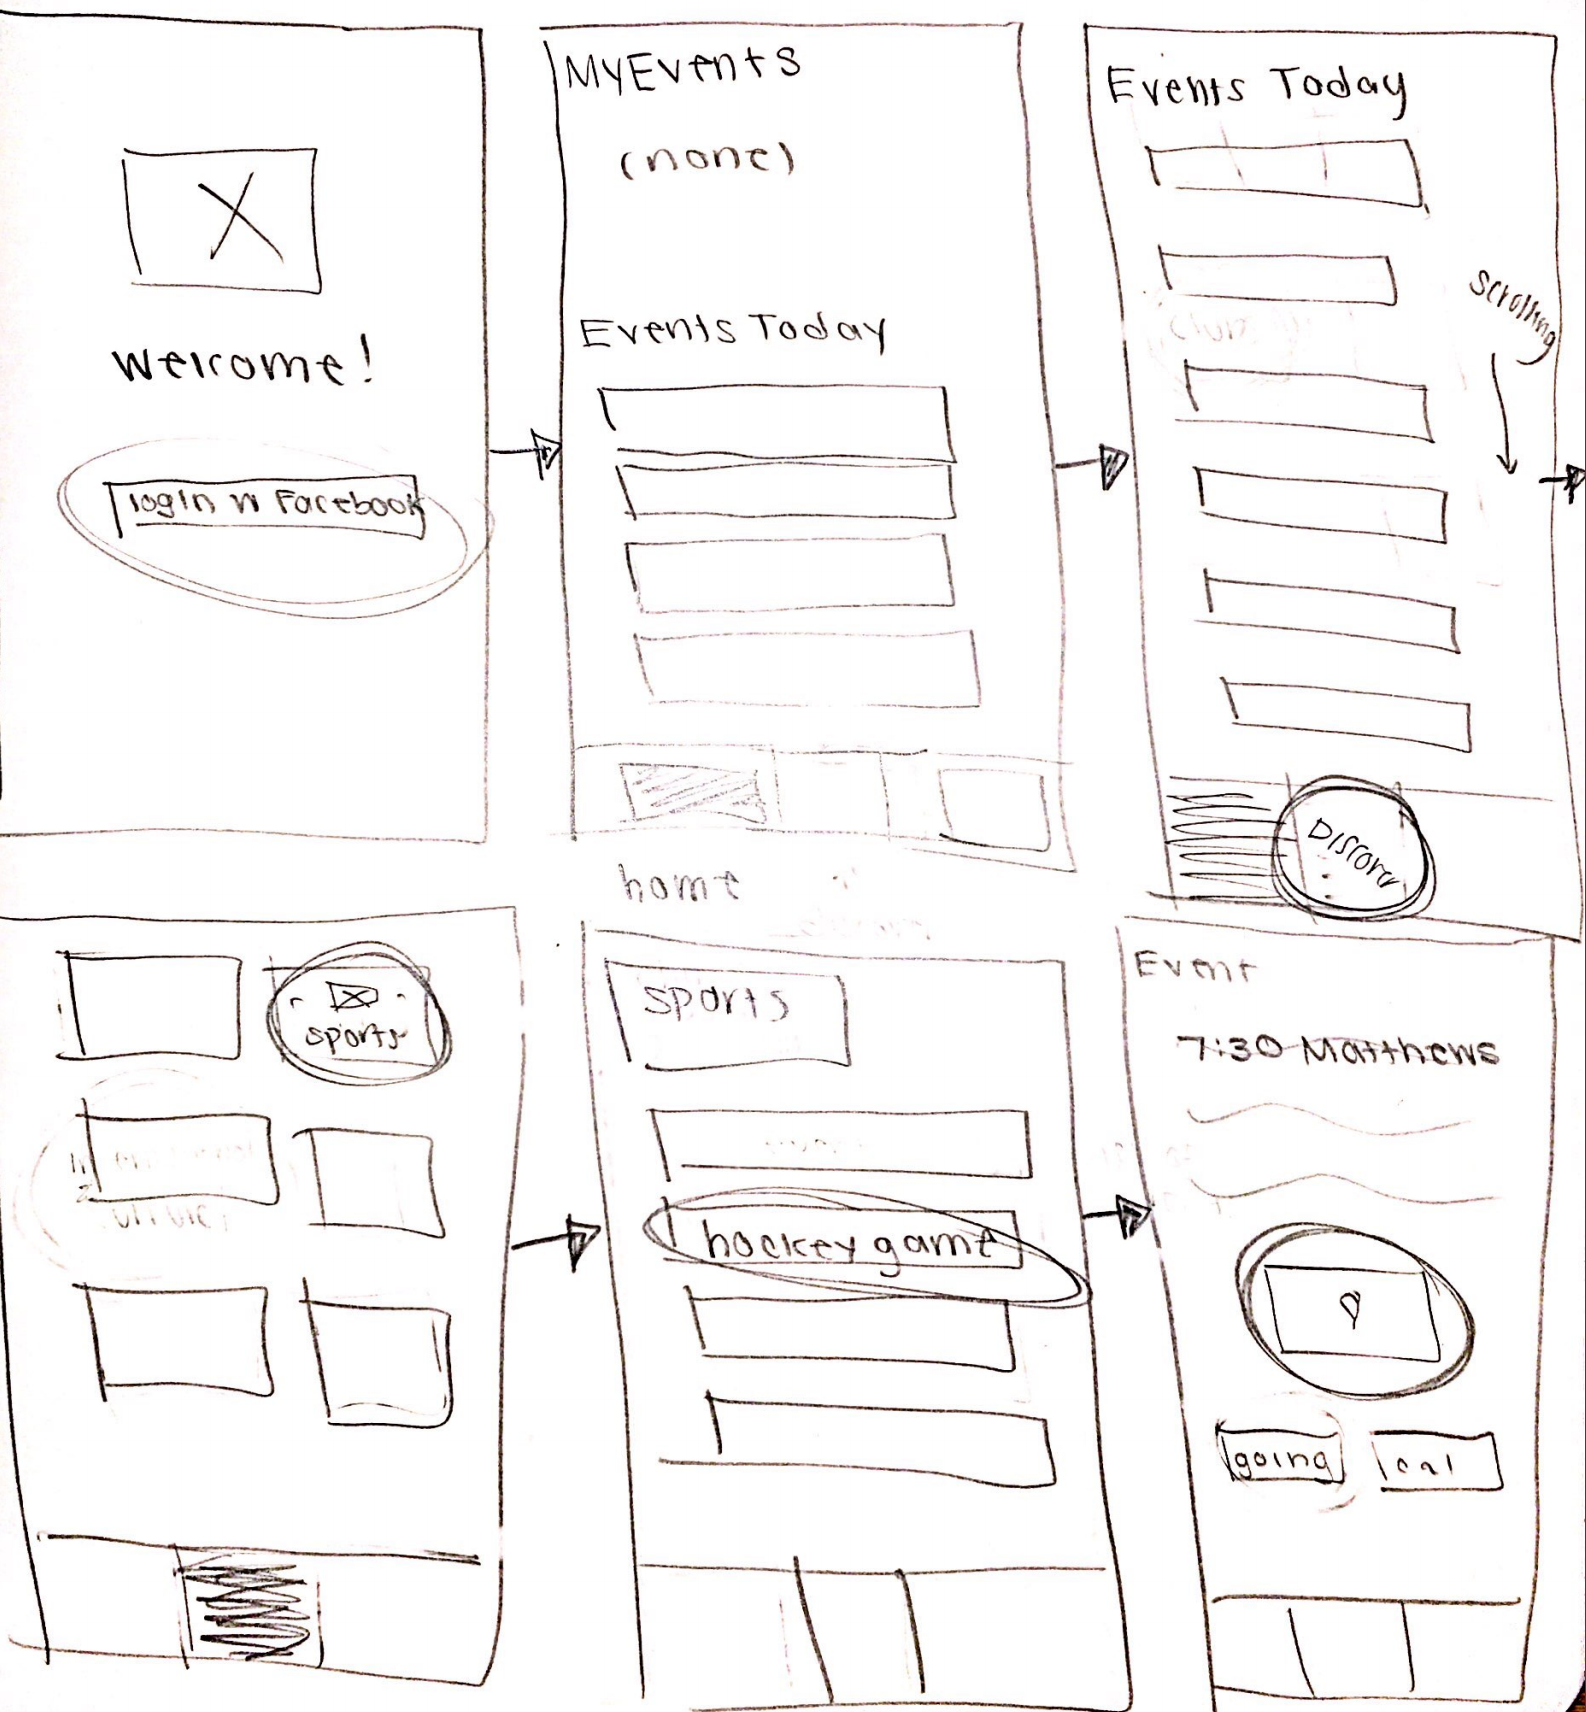 Welcome!
login w Facebook
MyEvents
(none)
Events Today
home
Events Today
scrolling
sports
sports
hockey game
Event
7:30 Matthews
going
cal